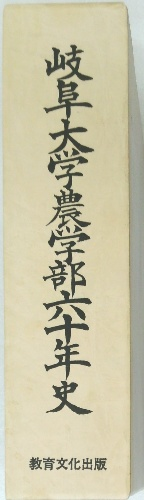 岐阜大学農学部六十年史
教育文化出版